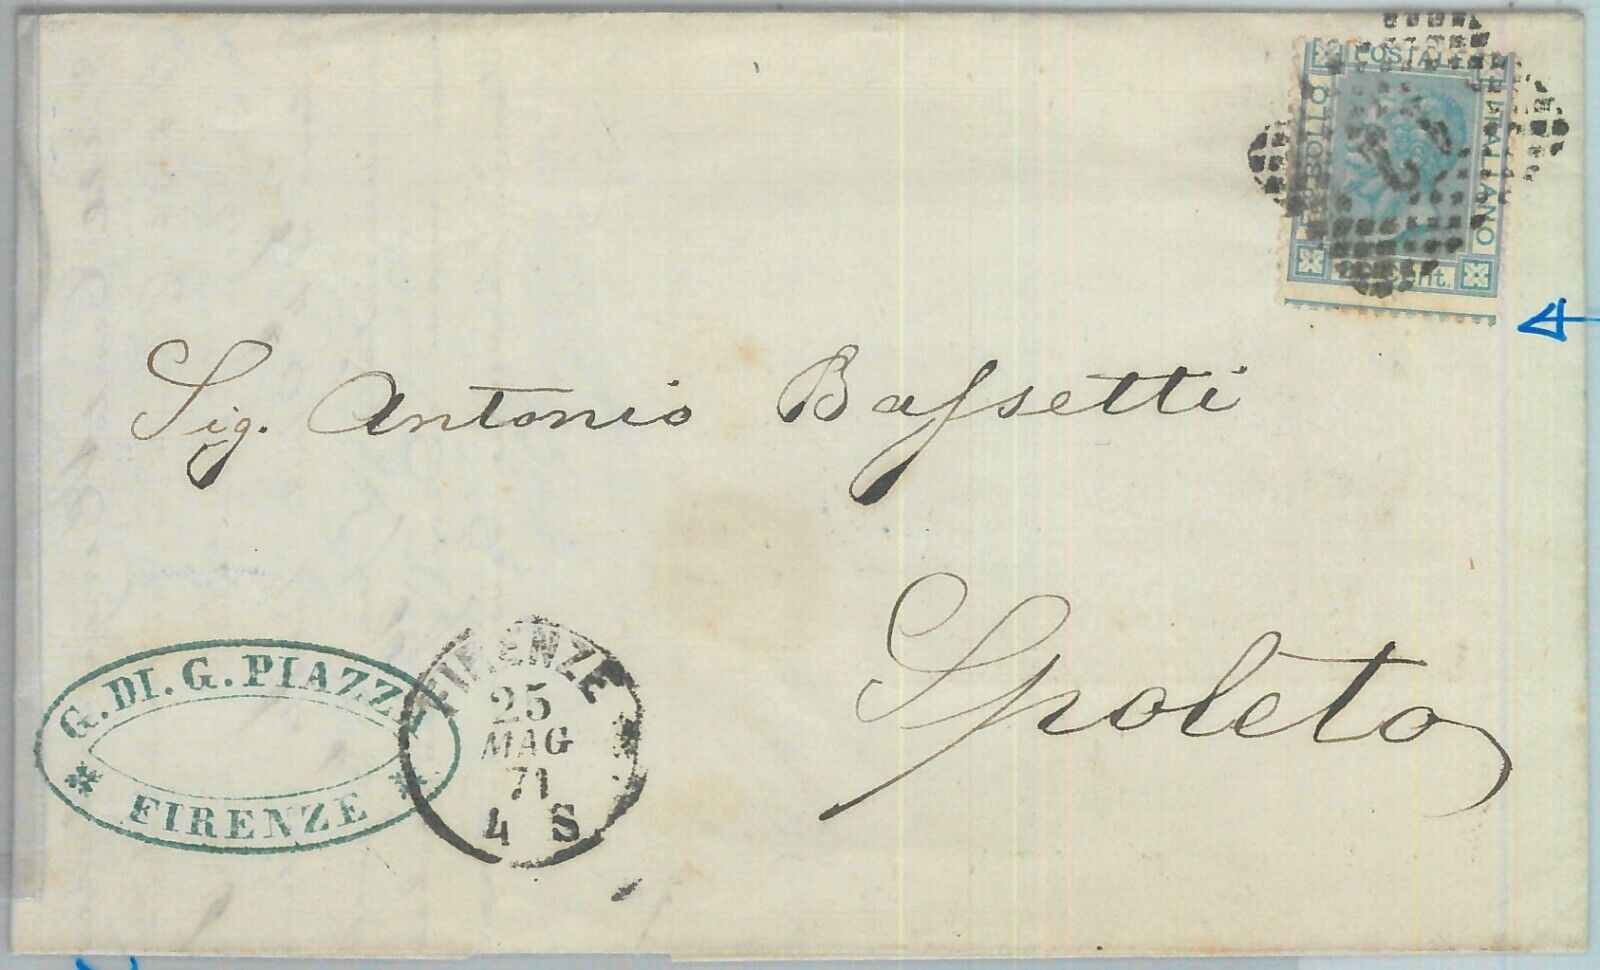 POSTALE
BOLLO
ITALIANO
Cent.
Sig. Antonio Bassetti
Spoleto
G. DI. G. PIAZZI
FIRENZE
FIRENZE
25
MAG
71
4 S